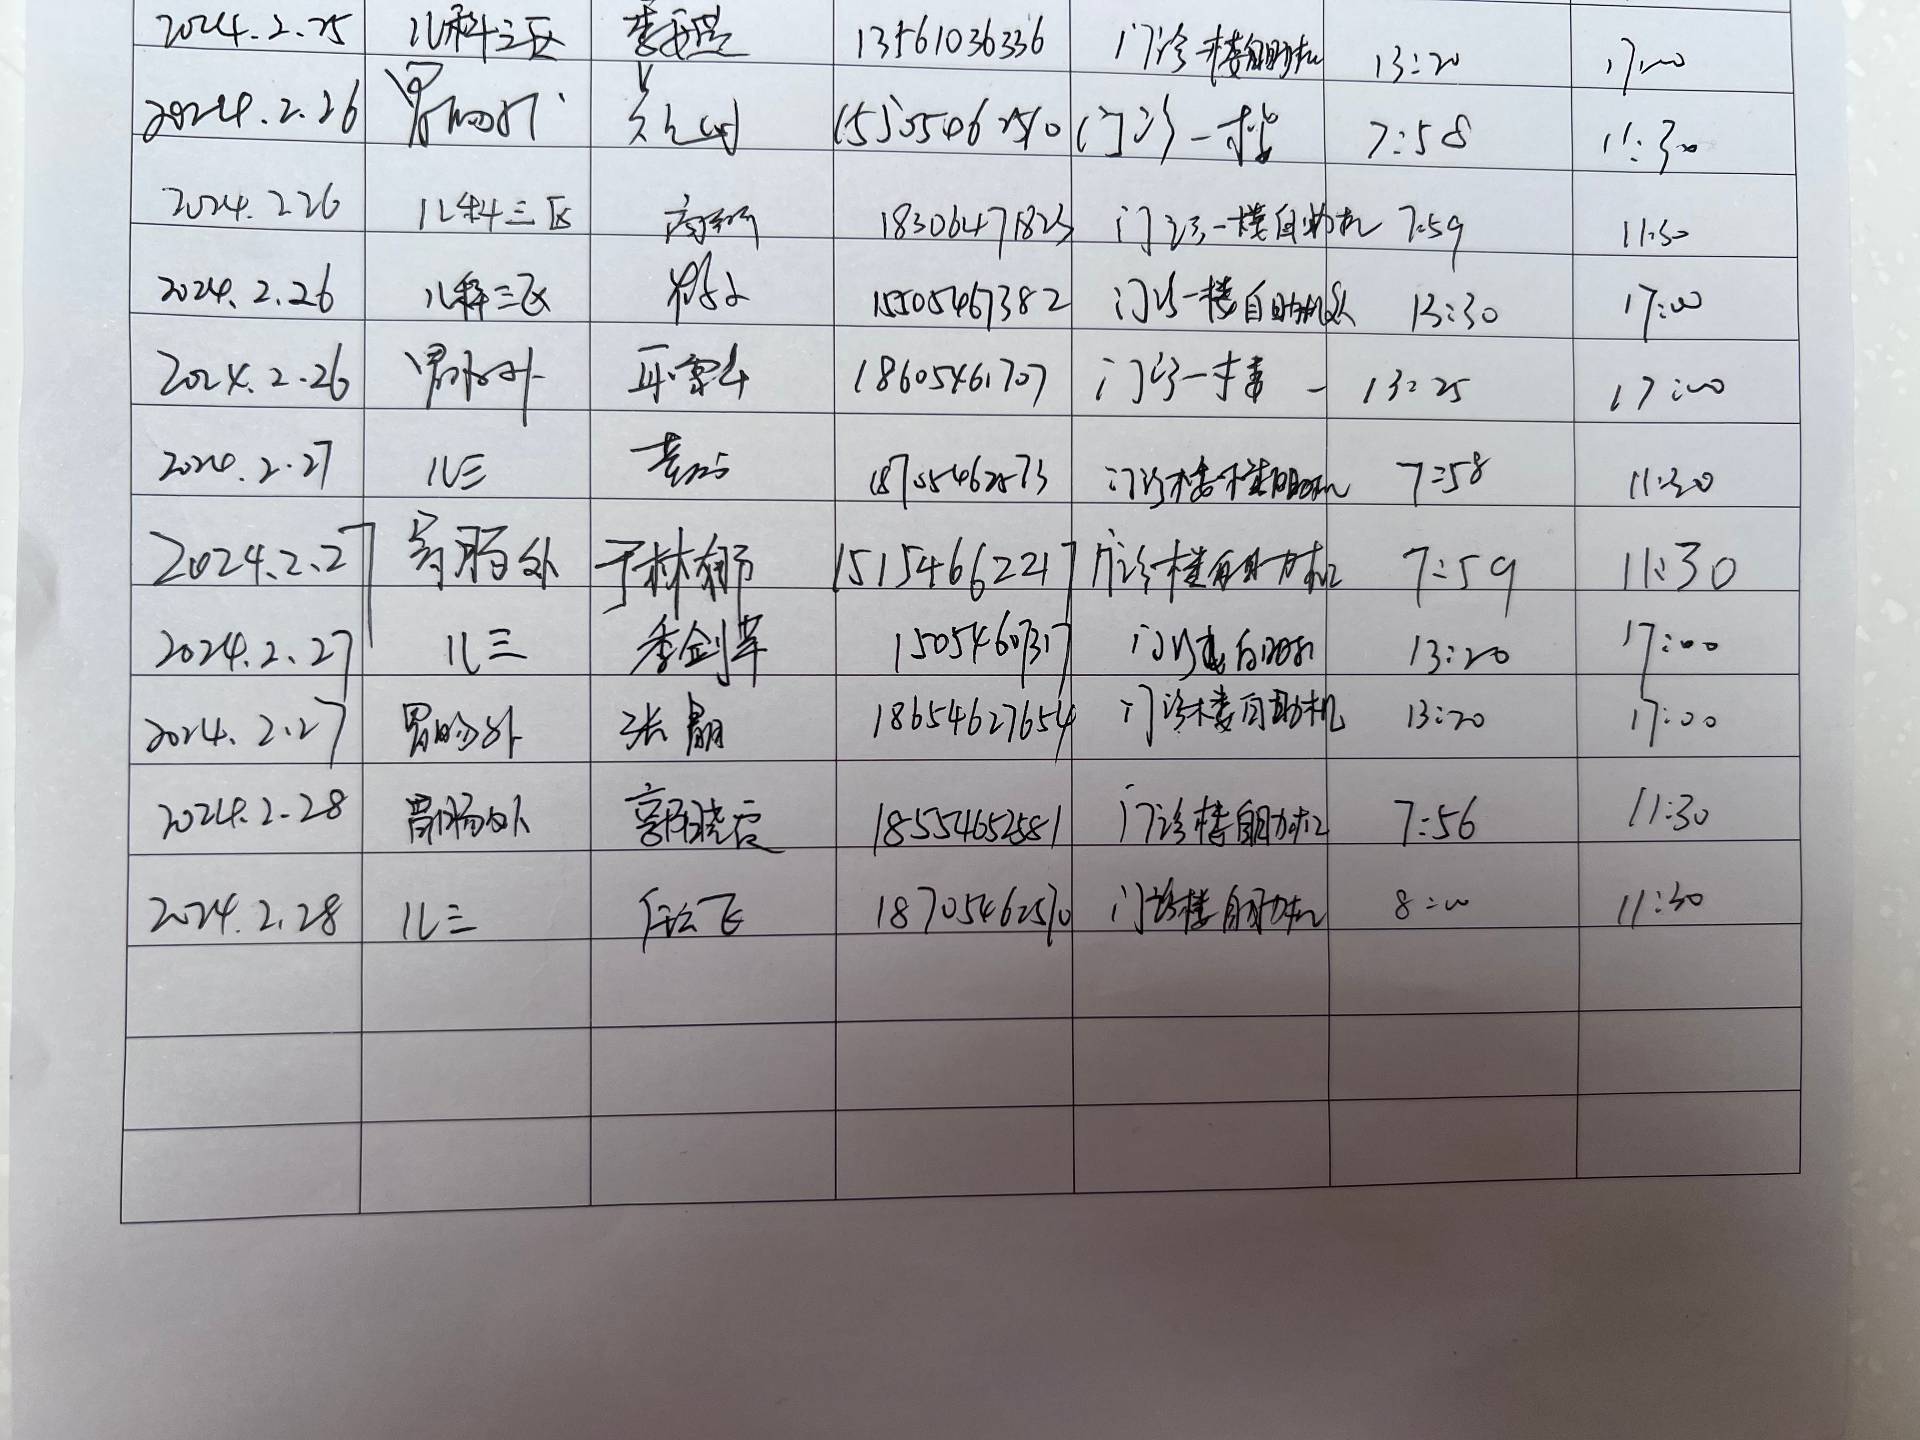 2024.2.25 儿科三区 13561036336 门诊一楼自助机 13:20 17:00
2024.2.26 胃肠外 15505462510 门诊一楼 7:58 11:30
2024.2.26 儿科三区 18306471823 门诊一楼自助机 7:59 11:30
2024.2.26 儿科三区 15505467382 门诊一楼自助机 13:30 17:00
2024.2.26 胃肠外 18605461707 门诊一楼 13:25 17:00
2024.2.27 儿三 18705462573 门诊楼一楼自助机 7:58 11:30
2024.2.27 胃肠外 于林娜 15154662217 门诊楼自助机 7:59 11:30
2024.2.27 儿三 季剑军 15054607317 门诊楼自助机 13:20 17:00
2024.2.27 胃肠外 张 18654627654 门诊楼自助机 13:20 17:00
2024.2.28 胃肠外 郭晓霞 18554652581 门诊楼自助机 7:56 11:30
2024.2.28 儿三 任云飞 18705462570 门诊楼自助机 8:00 11:30